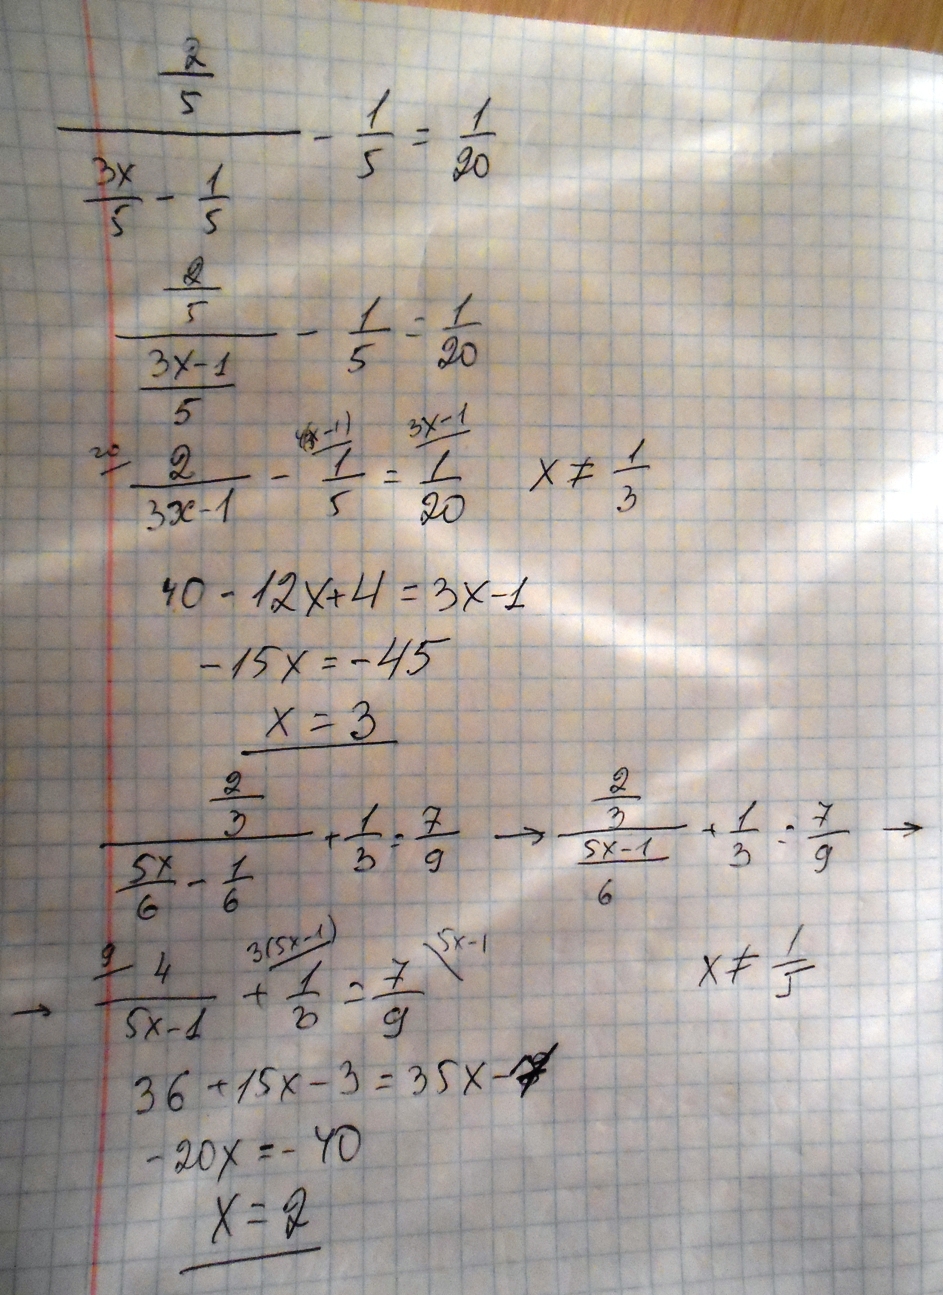 (2/5)/(3x/5 - 1/5) - 1/5 = 1/20
(2/5)/((3x-1)/5) - 1/5 = 1/20
20/ 2/(3x-1) - 4(3x-1)/ 1/5 = 3x-1/ 1/20 x ≠ 1/3
40 - 12x + 4 = 3x - 1
-15x = -45
x = 3
(2/3)/(5x/6 - 1/6) + 1/3 = 7/9 → (2/3)/((5x-1)/6) + 1/3 = 7/9 →
→ 9/ 4/(5x-1) + 3(5x-1)/ 1/3 = 7/9 \5x-1 x ≠ 1/5
36 + 15x - 3 = 35x - 7
-20x = -40
x = 2